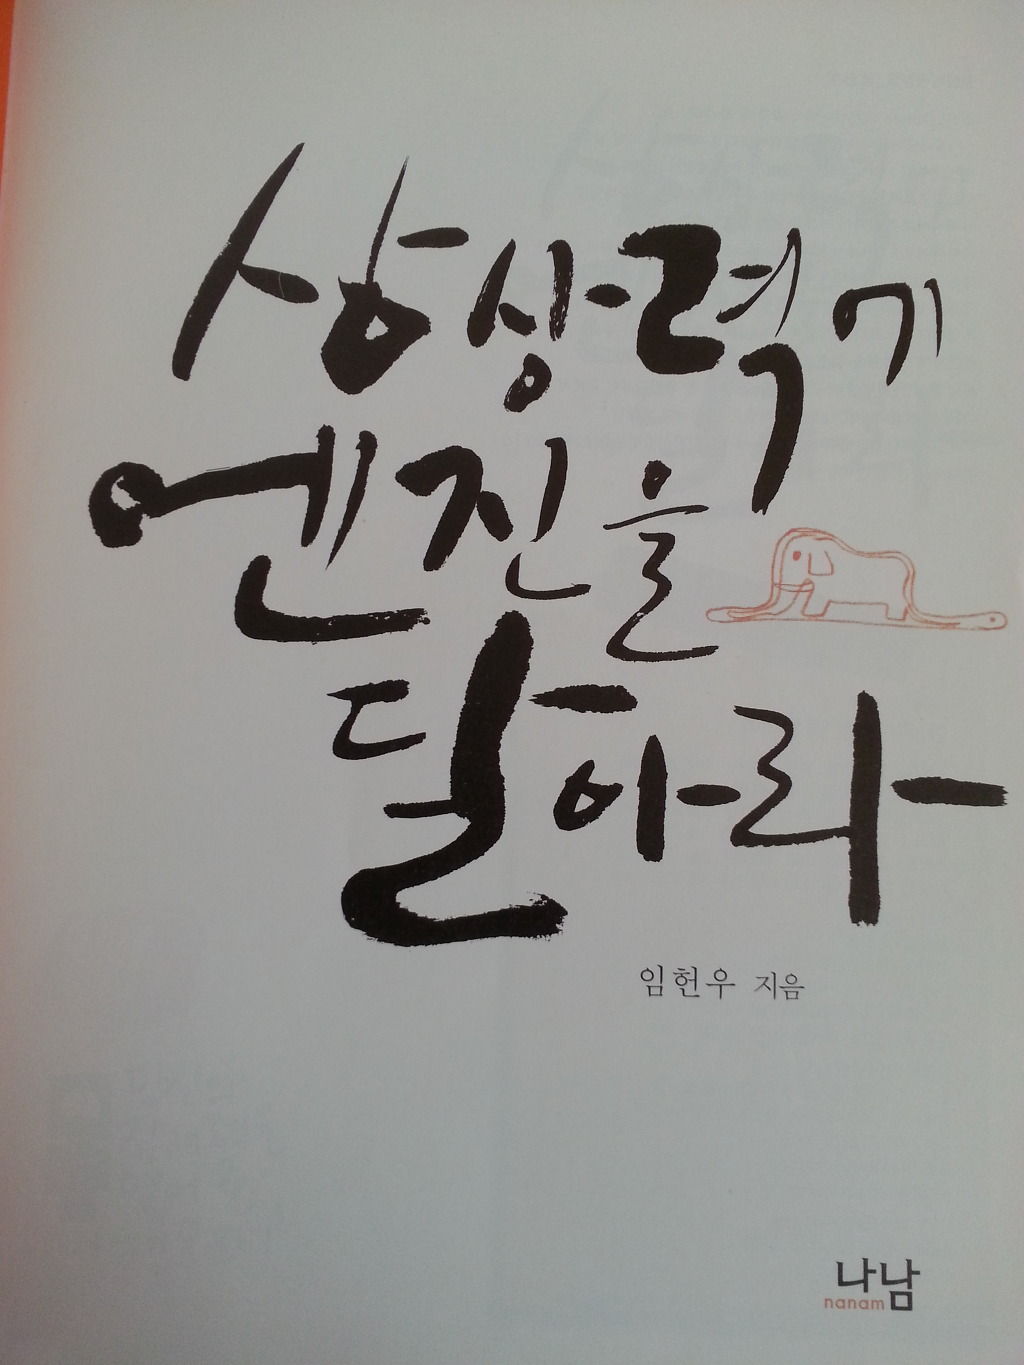 상상력에
엔진을
달아라
임헌우 지음
나남
nanam